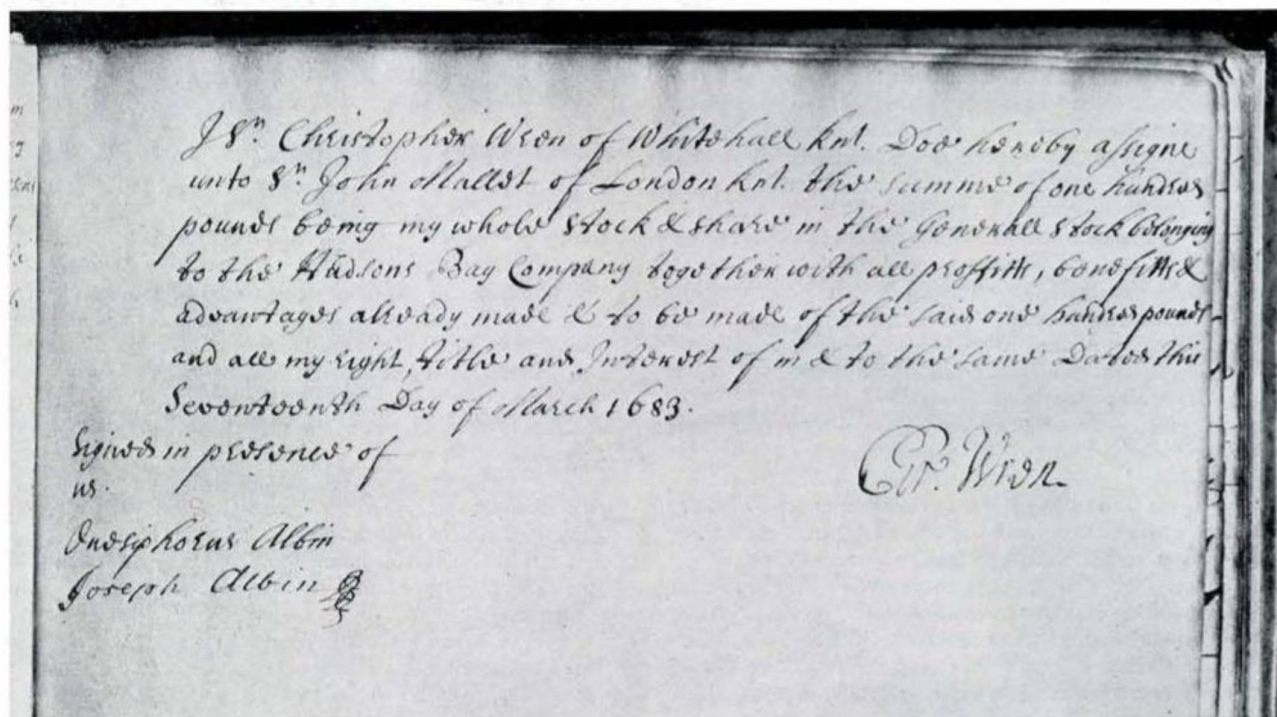 I Sr. Christopher Wren of Whitehall knt. Doe hereby assigne
unto Sr. John Mallet of London knt. the summe of one hundred
pounds being my whole stock & share in the Generall stock belonging
to the Hudsons Bay Company together with all proffitts, benefitts &
advantages already made & to be made of the said one hundred pounds
and all my right, title and Interest of in & to the same Dated this
Seventeenth Day of March 1683.
Signed in presence of
us.
Chr. Wren.
Onesiphorus Albin
Joseph Albin